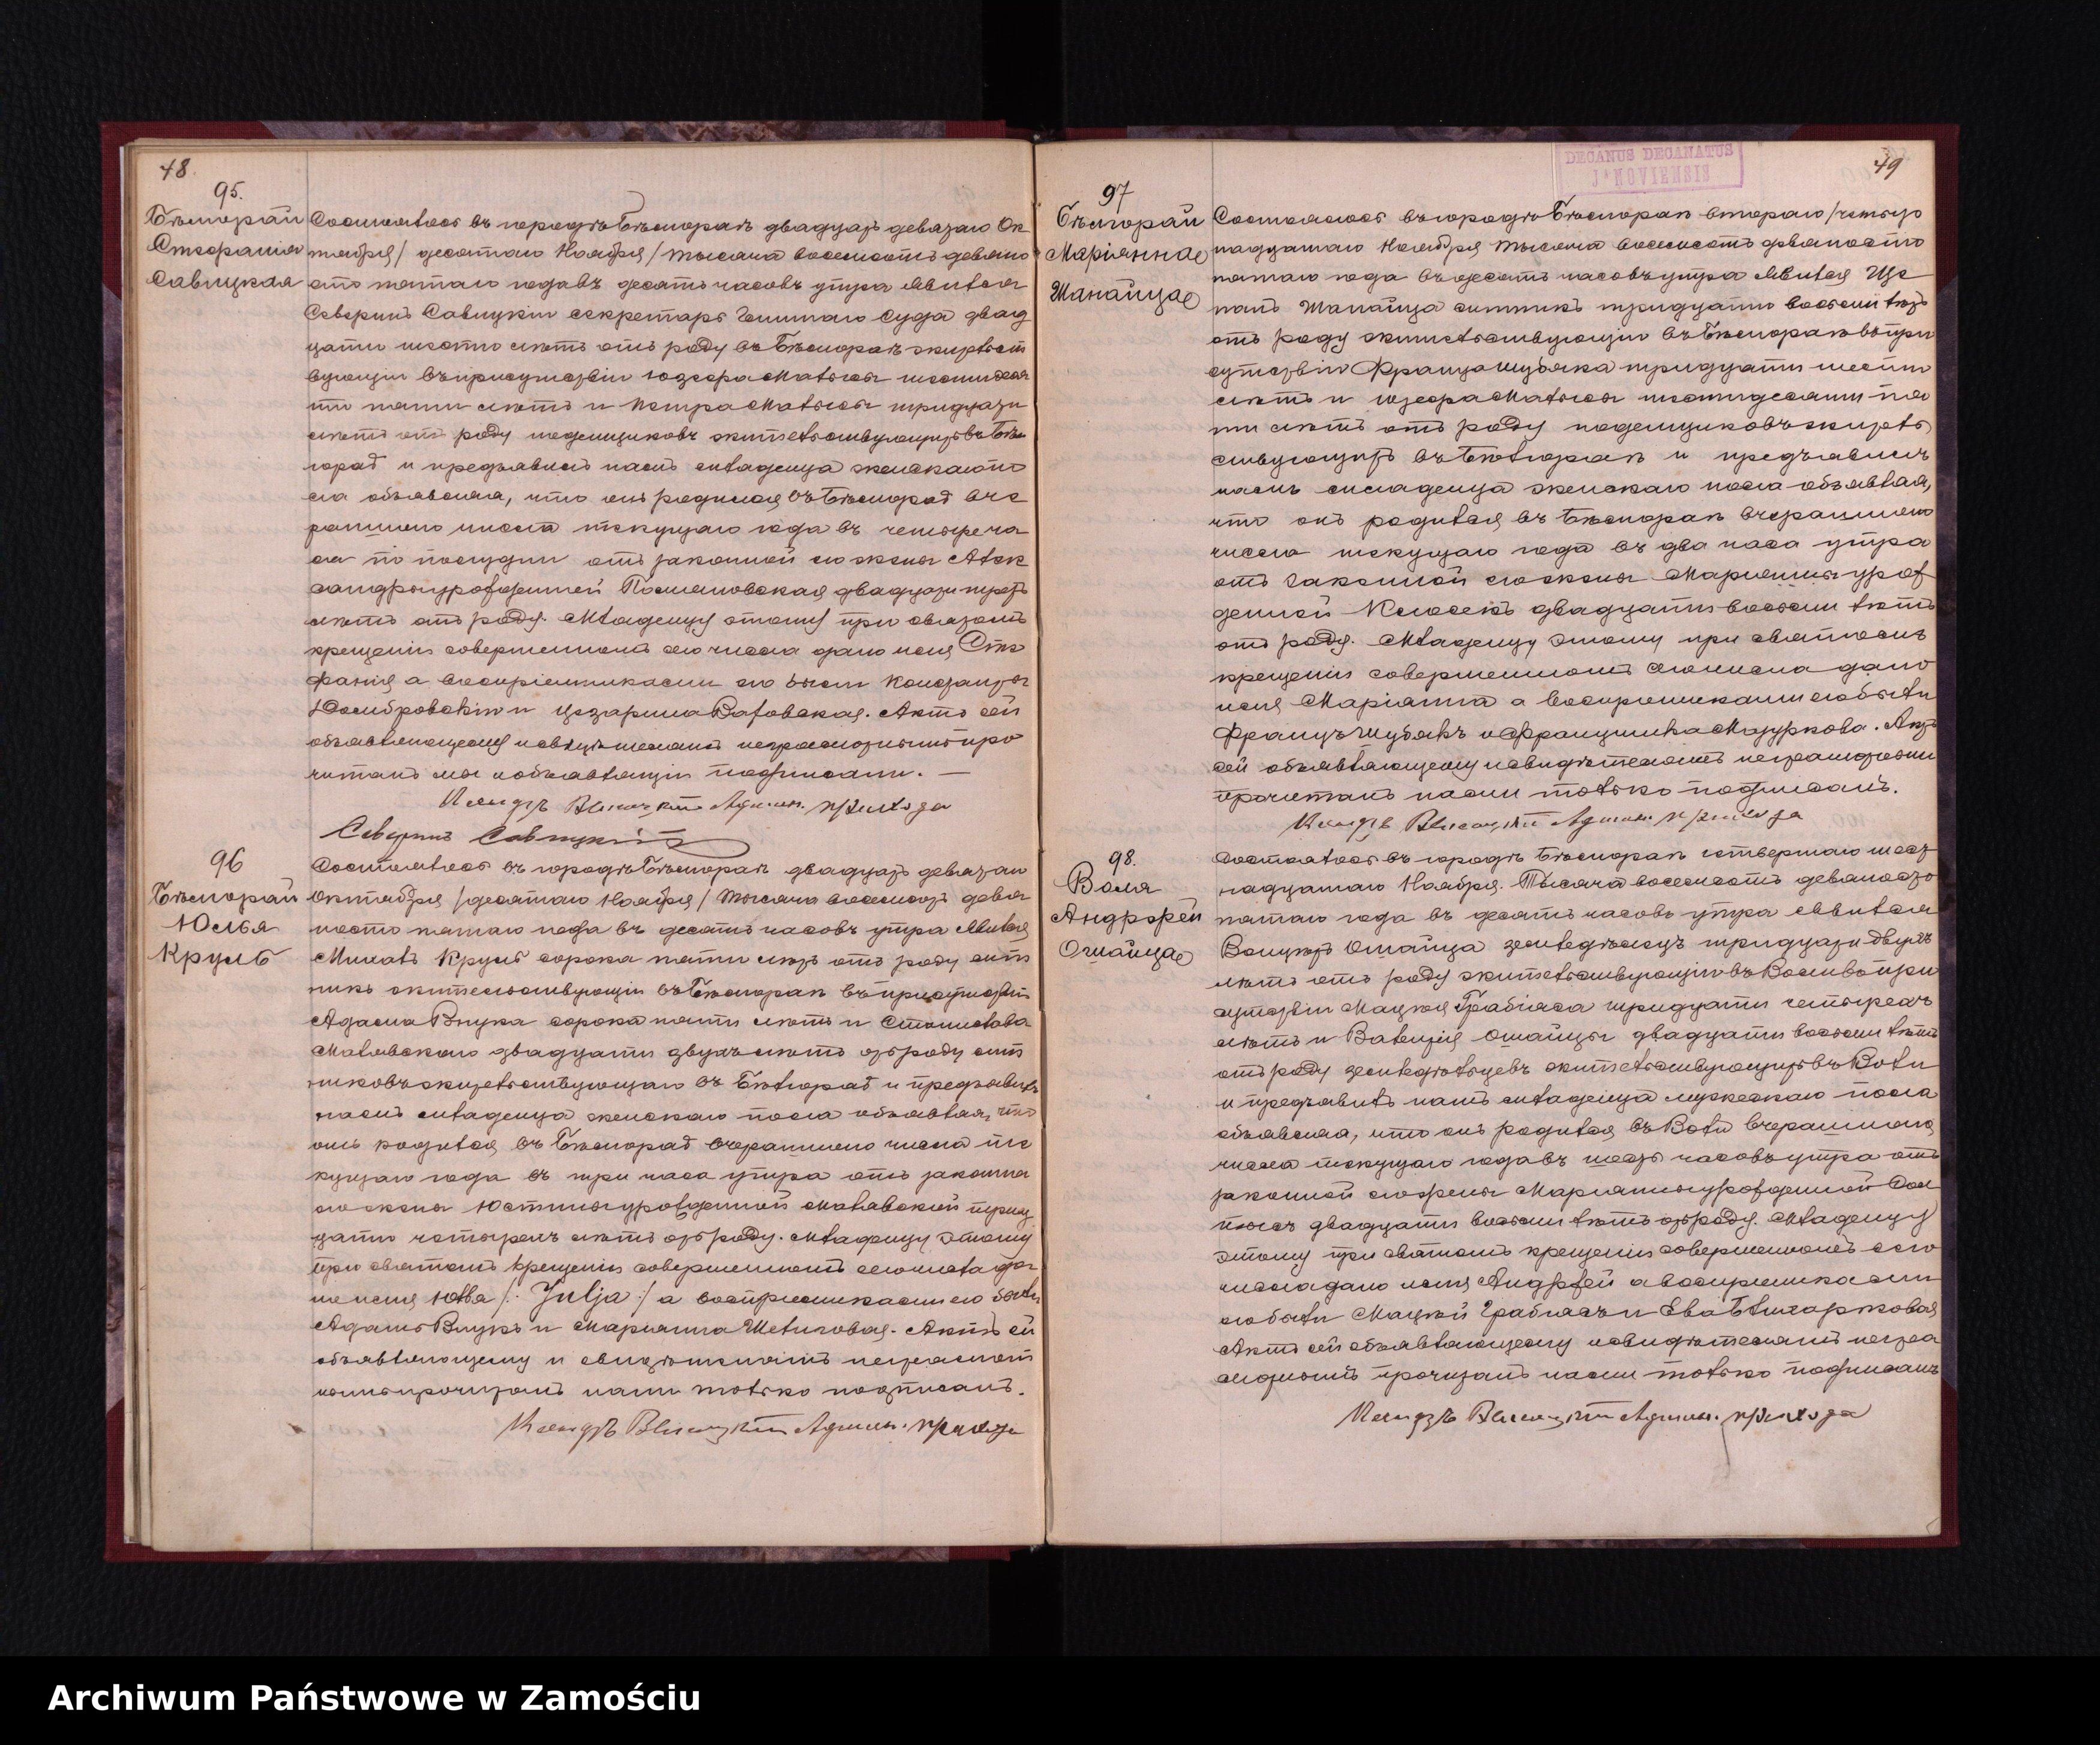 48
95.
Бѣлгорай
Стефания
Савицкая
Состоялось въ городѣ Бѣлгораѣ двадцать девятаго Ок
тября / десятаго Ноября / тысяча восемьсотъ девяно
сто пятаго года въ десять часовъ утра явился
Северинъ Савицкiй секретарь Гминнаго Суда двад
цати шести лѣтъ отъ роду въ Бѣлгораѣ жительст
вующiй въ присутствiи Юзефа Малысы шестидеся
ти пяти лѣтъ и Петра Малысы тридцати
лѣтъ отъ роду поденщиковъ жительствующихъ въ Бѣл
гораѣ и предъявилъ намъ младенца женскаго по
ла объявляя, что онъ родился въ Бѣлгораѣ вче
рашняго числа текущаго года въ четыре ча
са по полудни отъ законной его жены Алек
сандры урожденной двадцати трехъ
лѣтъ отъ роду. Младенцу этому при святомъ
крещенiи совершенномъ сего числа дано имя Сте
фанiя а восприемниками его были
Домбровскiй и Цезарина Раковская. Актъ сей
объявляющему и свидѣтелямъ неграмотнымъ про
читанъ мы и объявляющiй подписали. —
Ксендзъ Админ. прихода
Северинъ Савицкiй
96
Бѣлгорай
Юлья
Круль
Состоялось въ городѣ Бѣлгораѣ двадцать девятаго
Октября / десятаго Ноября / тысяча восемьсотъ девя
носто пятаго года въ десять часовъ утра явился
Михалъ Круль сорока пяти лѣтъ отъ роду сит
никъ жительствующiй въ Бѣлгораѣ въ присутствiи
Адама Внука сорока пяти лѣтъ и Станислава
Малявскаго двадцати двухъ лѣтъ отъ роду сит
никовъ жительствующихъ въ Бѣлгораѣ и предъявилъ
намъ младенца женскаго пола объявляя, что
онъ родился въ Бѣлгораѣ вчерашняго числа те
кущаго года въ три часа утра отъ законной
его жены Юстины урожденной Малявской трид
цати четырехъ лѣтъ отъ роду. Младенцу этому
при святомъ крещенiи совершенномъ сего числа да
но имя Юлья /: Julja :/ а восприемниками его были
Адамъ Внукъ и Марiанна Шелиговая. Актъ сей
объявляющему и свидѣтелямъ неграмот
нымъ прочитанъ нами только подписанъ.
Ксендзъ Админ. прихода
DECANUS DECANATUS
J*NOVIENSIS
49
97
Бѣлгорай
Марiанна
Шанайца
Состоялось въ городѣ Бѣлгораѣ втораго / четыр
надцатаго Ноября тысяча восемьсотъ девяносто
пятаго года въ десять часовъ утра явился Ще
панъ Шанайца ситникъ тридцати восьми лѣтъ
отъ роду жительствующiй въ Бѣлгораѣ въ при
сутствiи Франца Шубяка тридцати шести
лѣтъ и Юзефа Малысы шестидесяти пя
ти лѣтъ отъ роду поденщиковъ житель
ствующихъ въ Бѣлгораѣ и предъявилъ
намъ младенца женскаго пола объявляя,
что онъ родился въ Бѣлгораѣ вчерашняго
числа текущаго года въ два часа утра
отъ законной его жены Марiанны урож
денной Клосекъ двадцати восьми лѣтъ
отъ роду. Младенцу этому при святомъ
крещенiи совершенномъ сего числа дано
имя Марiанна а восприемниками его были
Францъ Шубякъ и Францишка Мазуркова. Актъ
сей объявляющему и свидѣтелямъ неграмотнымъ
прочитанъ нами только подписанъ.
Ксендзъ Админ. прихода
98.
Воля
Андржей
Ошайца
Состоялось въ городѣ Бѣлгораѣ четвертаго шест
надцатаго Ноября. Тысяча восемьсотъ девяносто
пятаго года въ десять часовъ утра явился
Ошайца земледѣлецъ тридцати двухъ
лѣтъ отъ роду жительствующiй въ Воли въ при
сутствiи Мацѣя Грабiаса тридцати четырехъ
лѣтъ и Ошайцы двадцати восьми лѣтъ
отъ роду земледѣльцевъ жительствующихъ въ Воли
и предъявилъ намъ младенца мужескаго пола
объявляя, что онъ родился въ Воли вчерашняго
числа текущаго года въ шесть часовъ утра отъ
законной его жены Марiанны урожденной
двадцати восьми лѣтъ отъ роду. Младенцу
этому при святомъ крещенiи совершенномъ сего
числа дано имя Андржей а восприемниками
его были Мацѣй Грабiасъ и Ева
Актъ сей объявляющему и свидѣтелямъ негра
мотнымъ прочитанъ нами только подписанъ
Ксендзъ Админ. прихода
Archiwum Państwowe w Zamościu